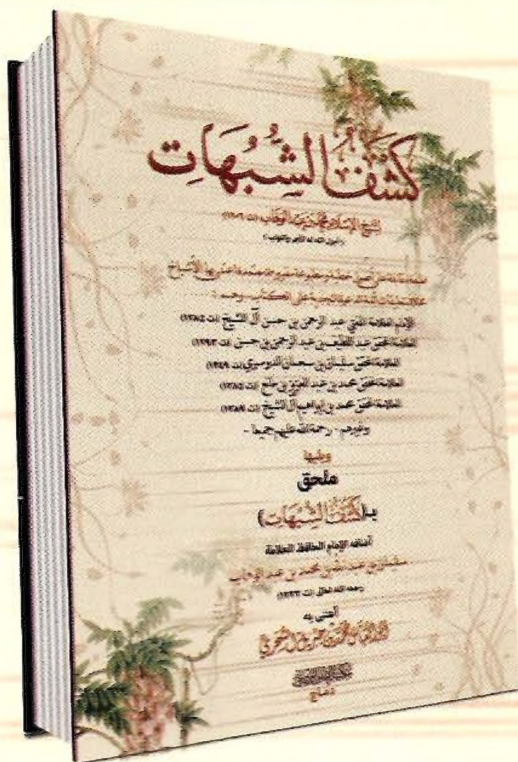 كَشْفُ الشُّبُهَاتِ
لشيخ الإسلام محمد بن عبد الوهاب (ت ١٢٠٦)
الإمام العلامة المفتي عبد الرحمن بن حسن آل الشيخ (ت ١٢٨٥)
العلامة المحقق عبد اللطيف بن عبد الرحمن بن حسن (ت ١٢٩٣)
العلامة المحقق سليمان بن سحمان الدوسري (ت ١٣٤٩)
العلامة المحقق محمد بن عبد العزيز بن مانع (ت ١٣٨٥)
العلامة المحقق محمد بن إبراهيم آل الشيخ (ت ١٣٨٩)
وغيرهم - رحمة الله عليهم جميعا -
ويليها
ملحق
بـ(كَشْفُ الشُّبُهَاتِ)
أضافه الإمام الحافظ العلامة
سليمان بن عبد الله بن محمد بن عبد الوهاب
رحمه الله تعالى (ت ١٢٣٣)
اعتنى به
دماج